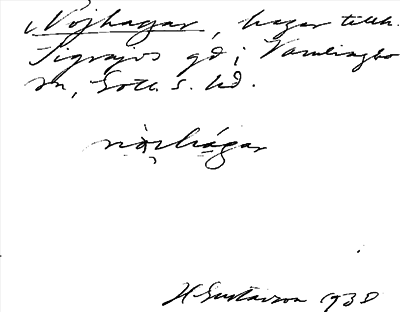 Nojhagar, hagar tillh.
Sigrajvs gd i Vamlingbo
sn, Gotl. S. hd.
H Gustavson 1938